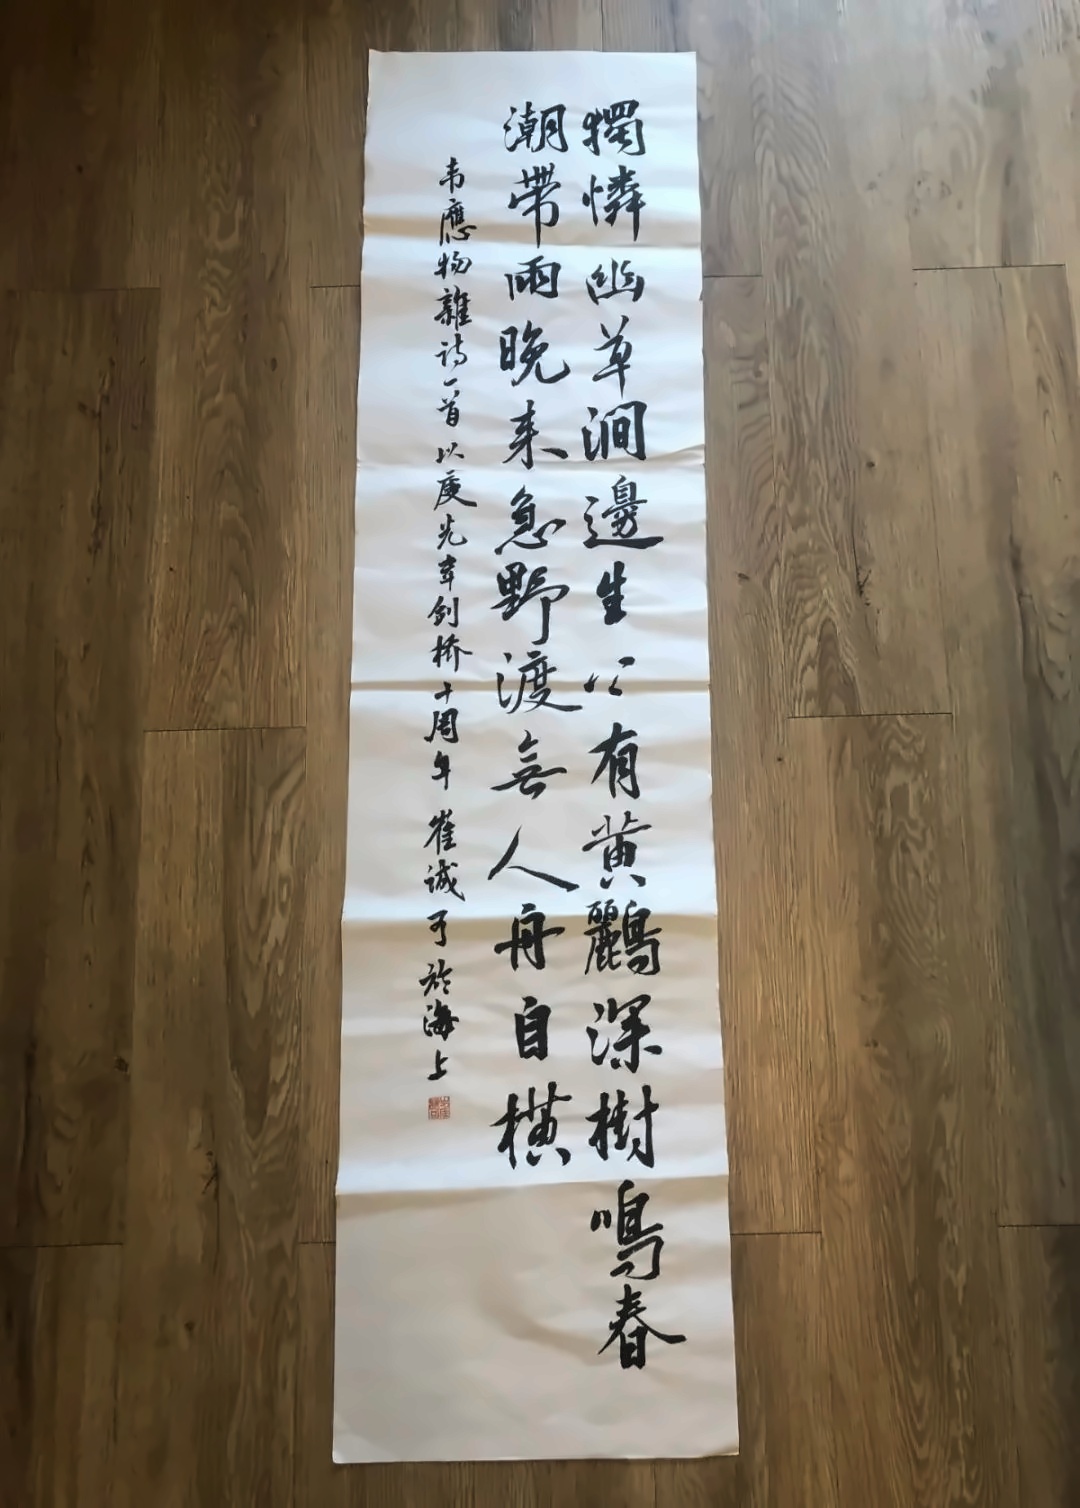 獨憐幽草澗邊生上有黄鸝深樹鳴春
潮帶雨晚来急野渡無人舟自橫
韦應物雜诗一首以慶先幸剑桥十周年 崔诚可於海上